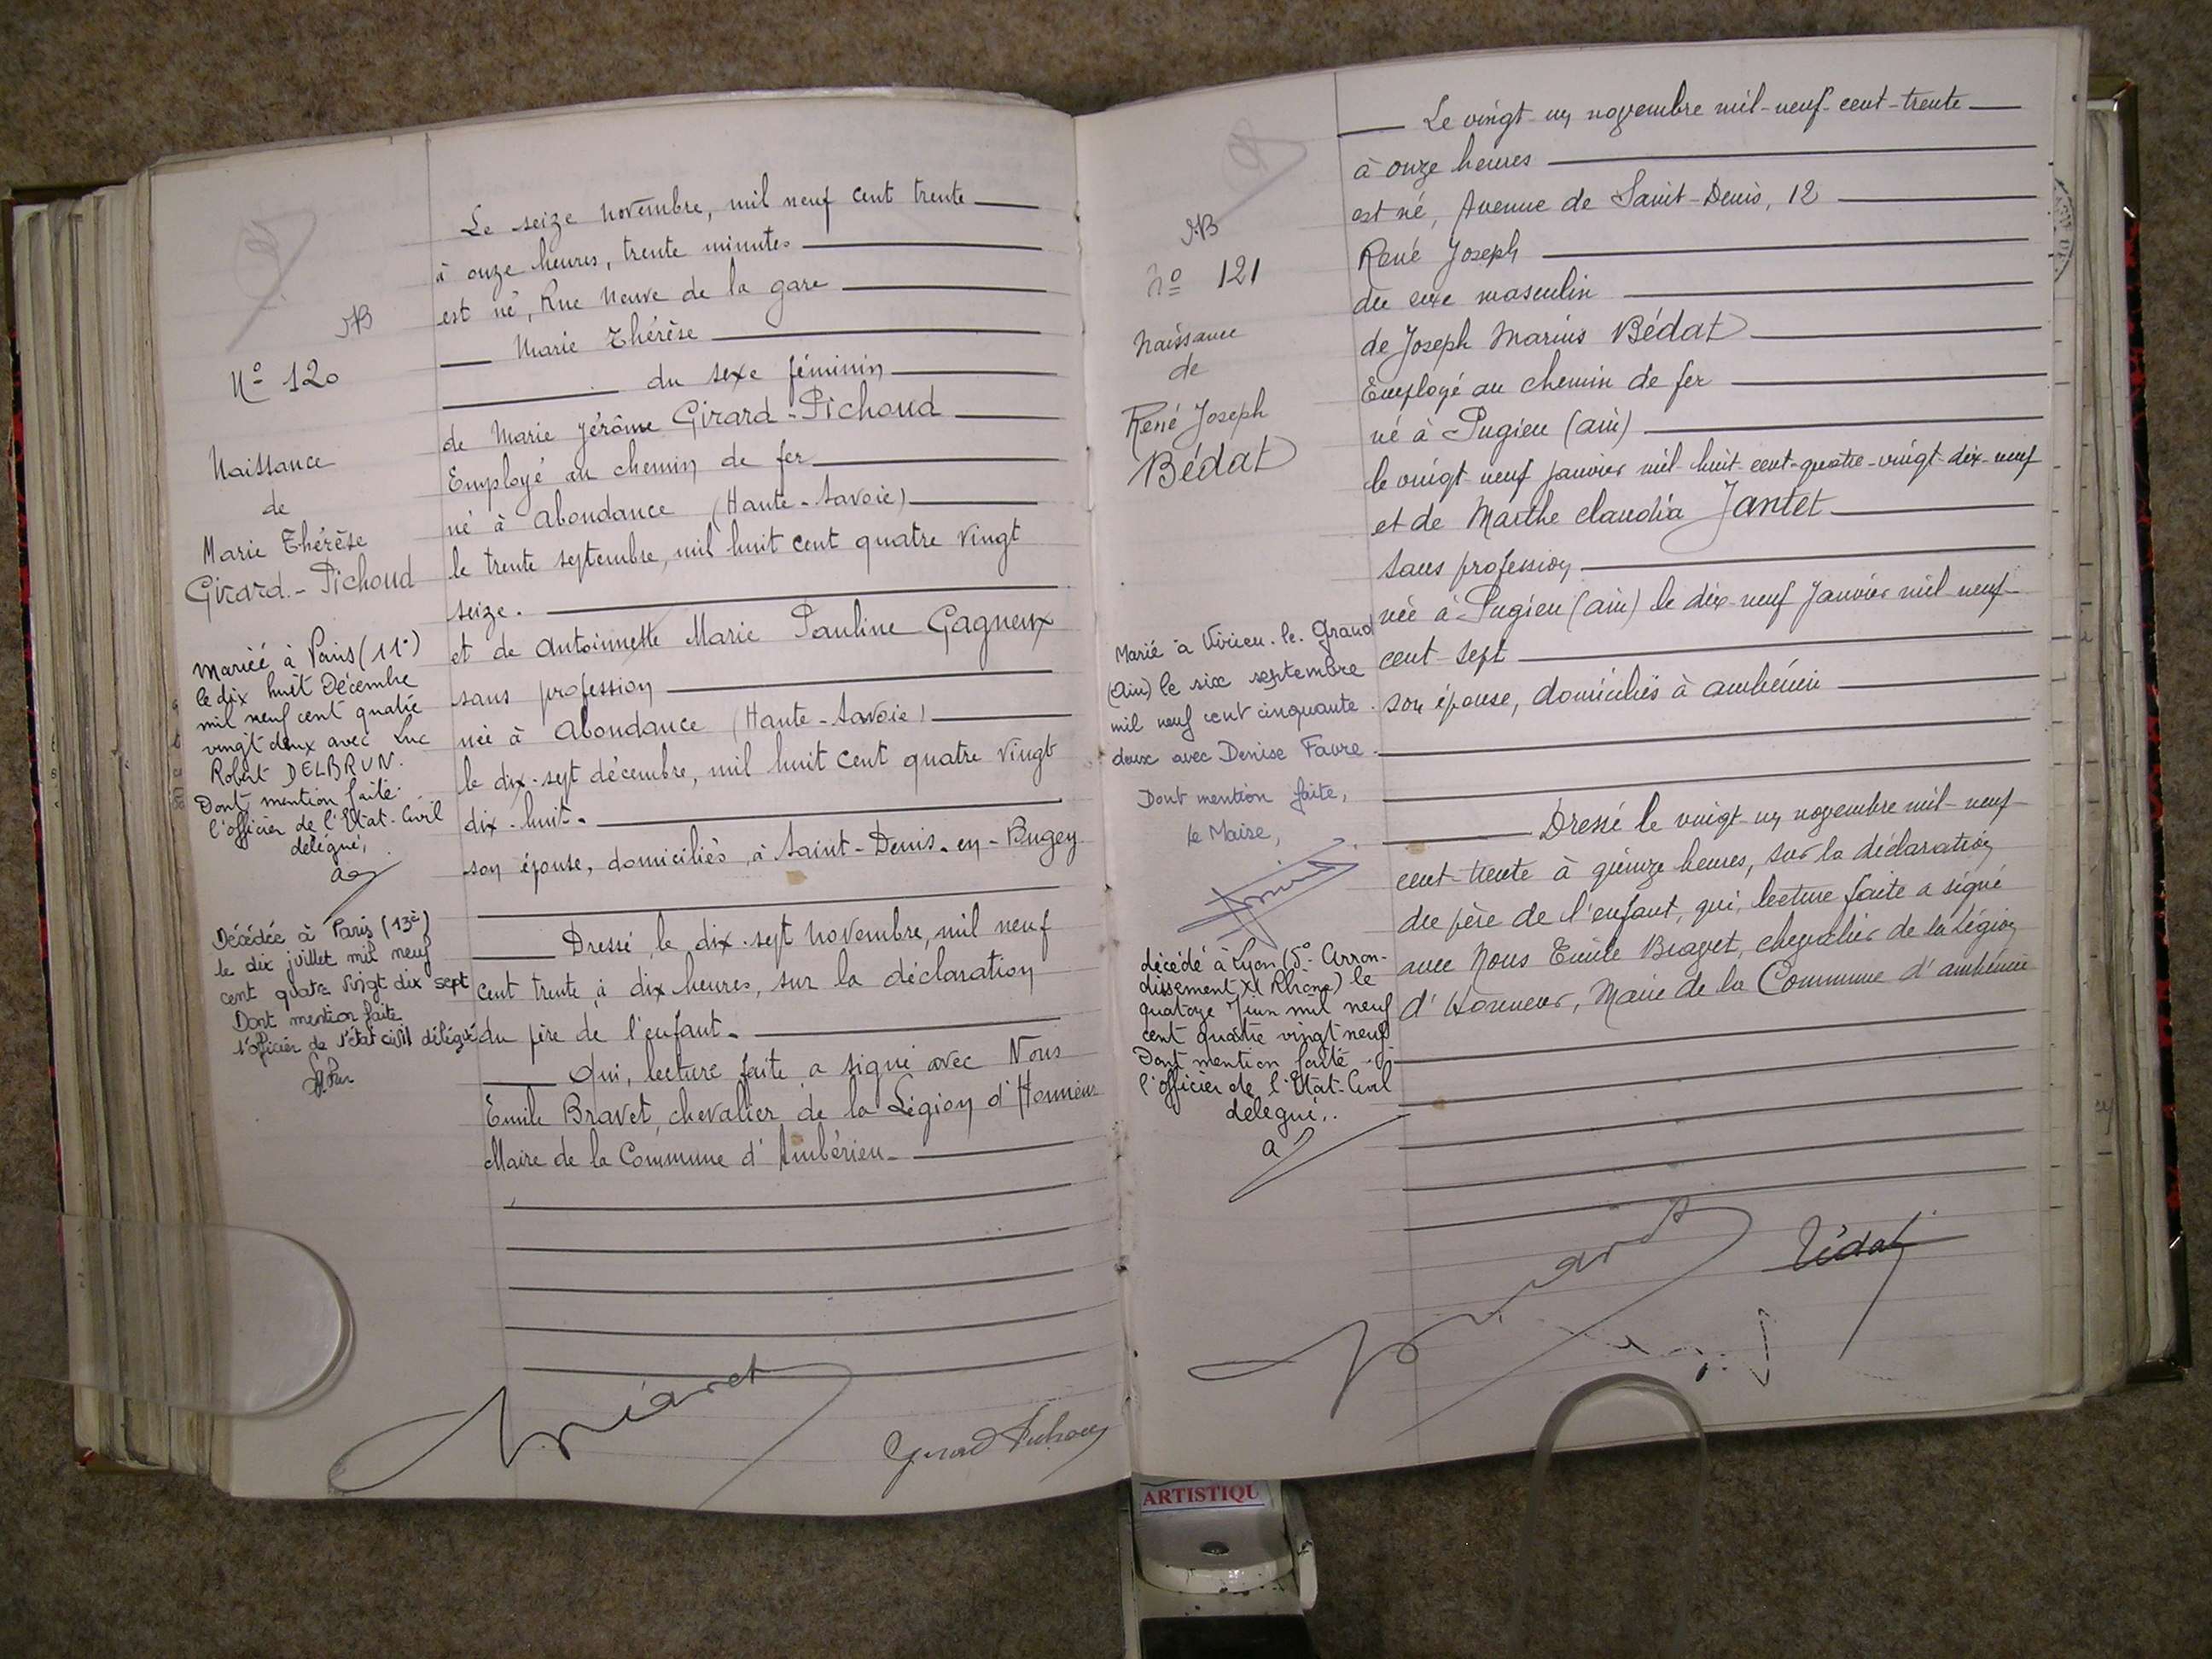 AB
N° 120
Naissance
de
Marie Thérèse
Girard-Pichoud
Mariée à Paris (11e)
le dix huit Décembre
mil neuf cent quatre
vingt deux avec Luc
Robert DELBRUN.
Dont mention faite.
l'officier de l'Etat-Civil
délégué,
Décédée à Paris (13è)
le dix juillet mil neuf
cent quatre vingt dix sept
Dont mention faite
l'officier de l'état civil délégué
Le seize novembre, mil neuf cent trente
à onze heures, trente minutes
est né, Rue Neuve de la gare
Marie Thérèse
du sexe féminin
de Marie Jérôme Girard-Pichoud
Employé au chemin de fer
né à Abondance (Haute-Savoie)
le trente septembre, mil huit cent quatre vingt
seize.
et de Antoinette Marie Pauline Gagneux
sans profession
née à Abondance (Haute-Savoie)
le dix-sept décembre, mil huit cent quatre vingt
dix-huit.
son épouse, domiciliés à Saint-Denis-en-Bugey
Dressé, le dix-sept novembre, mil neuf
cent trente à dix heures, sur la déclaration
du père de l'enfant.
Qui, lecture faite a signé avec Nous
Emile Bravet, chevalier de la Légion d'Honneur
Maire de la Commune d'Ambérieu.
Bravet
Girard Pichoud
AB
N° 121
Naissance
de
René Joseph
Bédat
Marié à Virieu-le-Grand
(Ain) le six septembre
mil neuf cent cinquante
deux avec Denise Favre.
Dont mention faite,
Le Maire,
décédé à Lyon (5e Arron-
dissement) (Rhône) le
quatorze Juin mil neuf
cent quatre vingt neuf
Dont mention faite
l'officier de l'Etat-Civil
délégué.
Le vingt-un novembre mil-neuf-cent-trente
à onze heures
est né, Avenue de Saint-Denis, 12
René Joseph
du sexe masculin
de Joseph Marius Bédat
Employé au chemin de fer
né à Pugieu (ain)
le vingt-neuf janvier mil-huit-cent-quatre-vingt-dix-neuf
et de Marthe Claudia Jantet
sans profession
née à Pugieu (ain) le dix-neuf Janvier mil-neuf-
cent-sept
son épouse, domiciliés à ambérieu
Dressé le vingt-un novembre mil-neuf
cent-trente à quinze heures, sur la déclaration
du père de l'enfant, qui, lecture faite a signé
avec Nous Emile Bravet, chevalier de la Légion
d'Honneur, Maire de la Commune d'ambérieu
Bravet
Bédat
ARTISTIQU